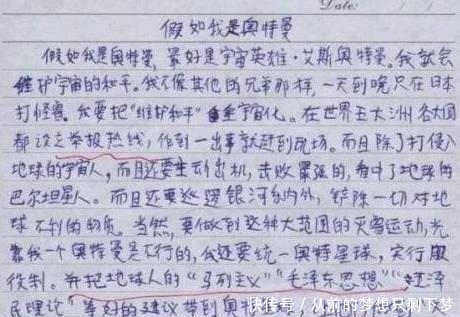 Date:
假如我是奥特曼
假如我是奥特曼,最好是宇宙英雄·艾斯奥特曼。我就会
维护宇宙的和平。我不像其他的兄弟那样,一天到晚只在日本
打怪兽。我要把“维护和平”宇宙化。在世界五大洲各大国
都设立举报热线,作到一出事就赶到现场。而且除了打侵入
地球的宇宙人,而且还要主动出机,击败累强的,看中了地球的
巴尔坦星人。而且还要巡逻银河系内外,铲除一切对地
球不利的物质。当然,要做到这种大范围的灭害运动,光
靠我一个奥特曼是不行的,我还要统一奥特星球,实行服
役制。并把地球人的“马列主义”“毛泽东思想”“江泽
民理论”等好的建议带到奥
快传号/从前的梦想只剩下梦